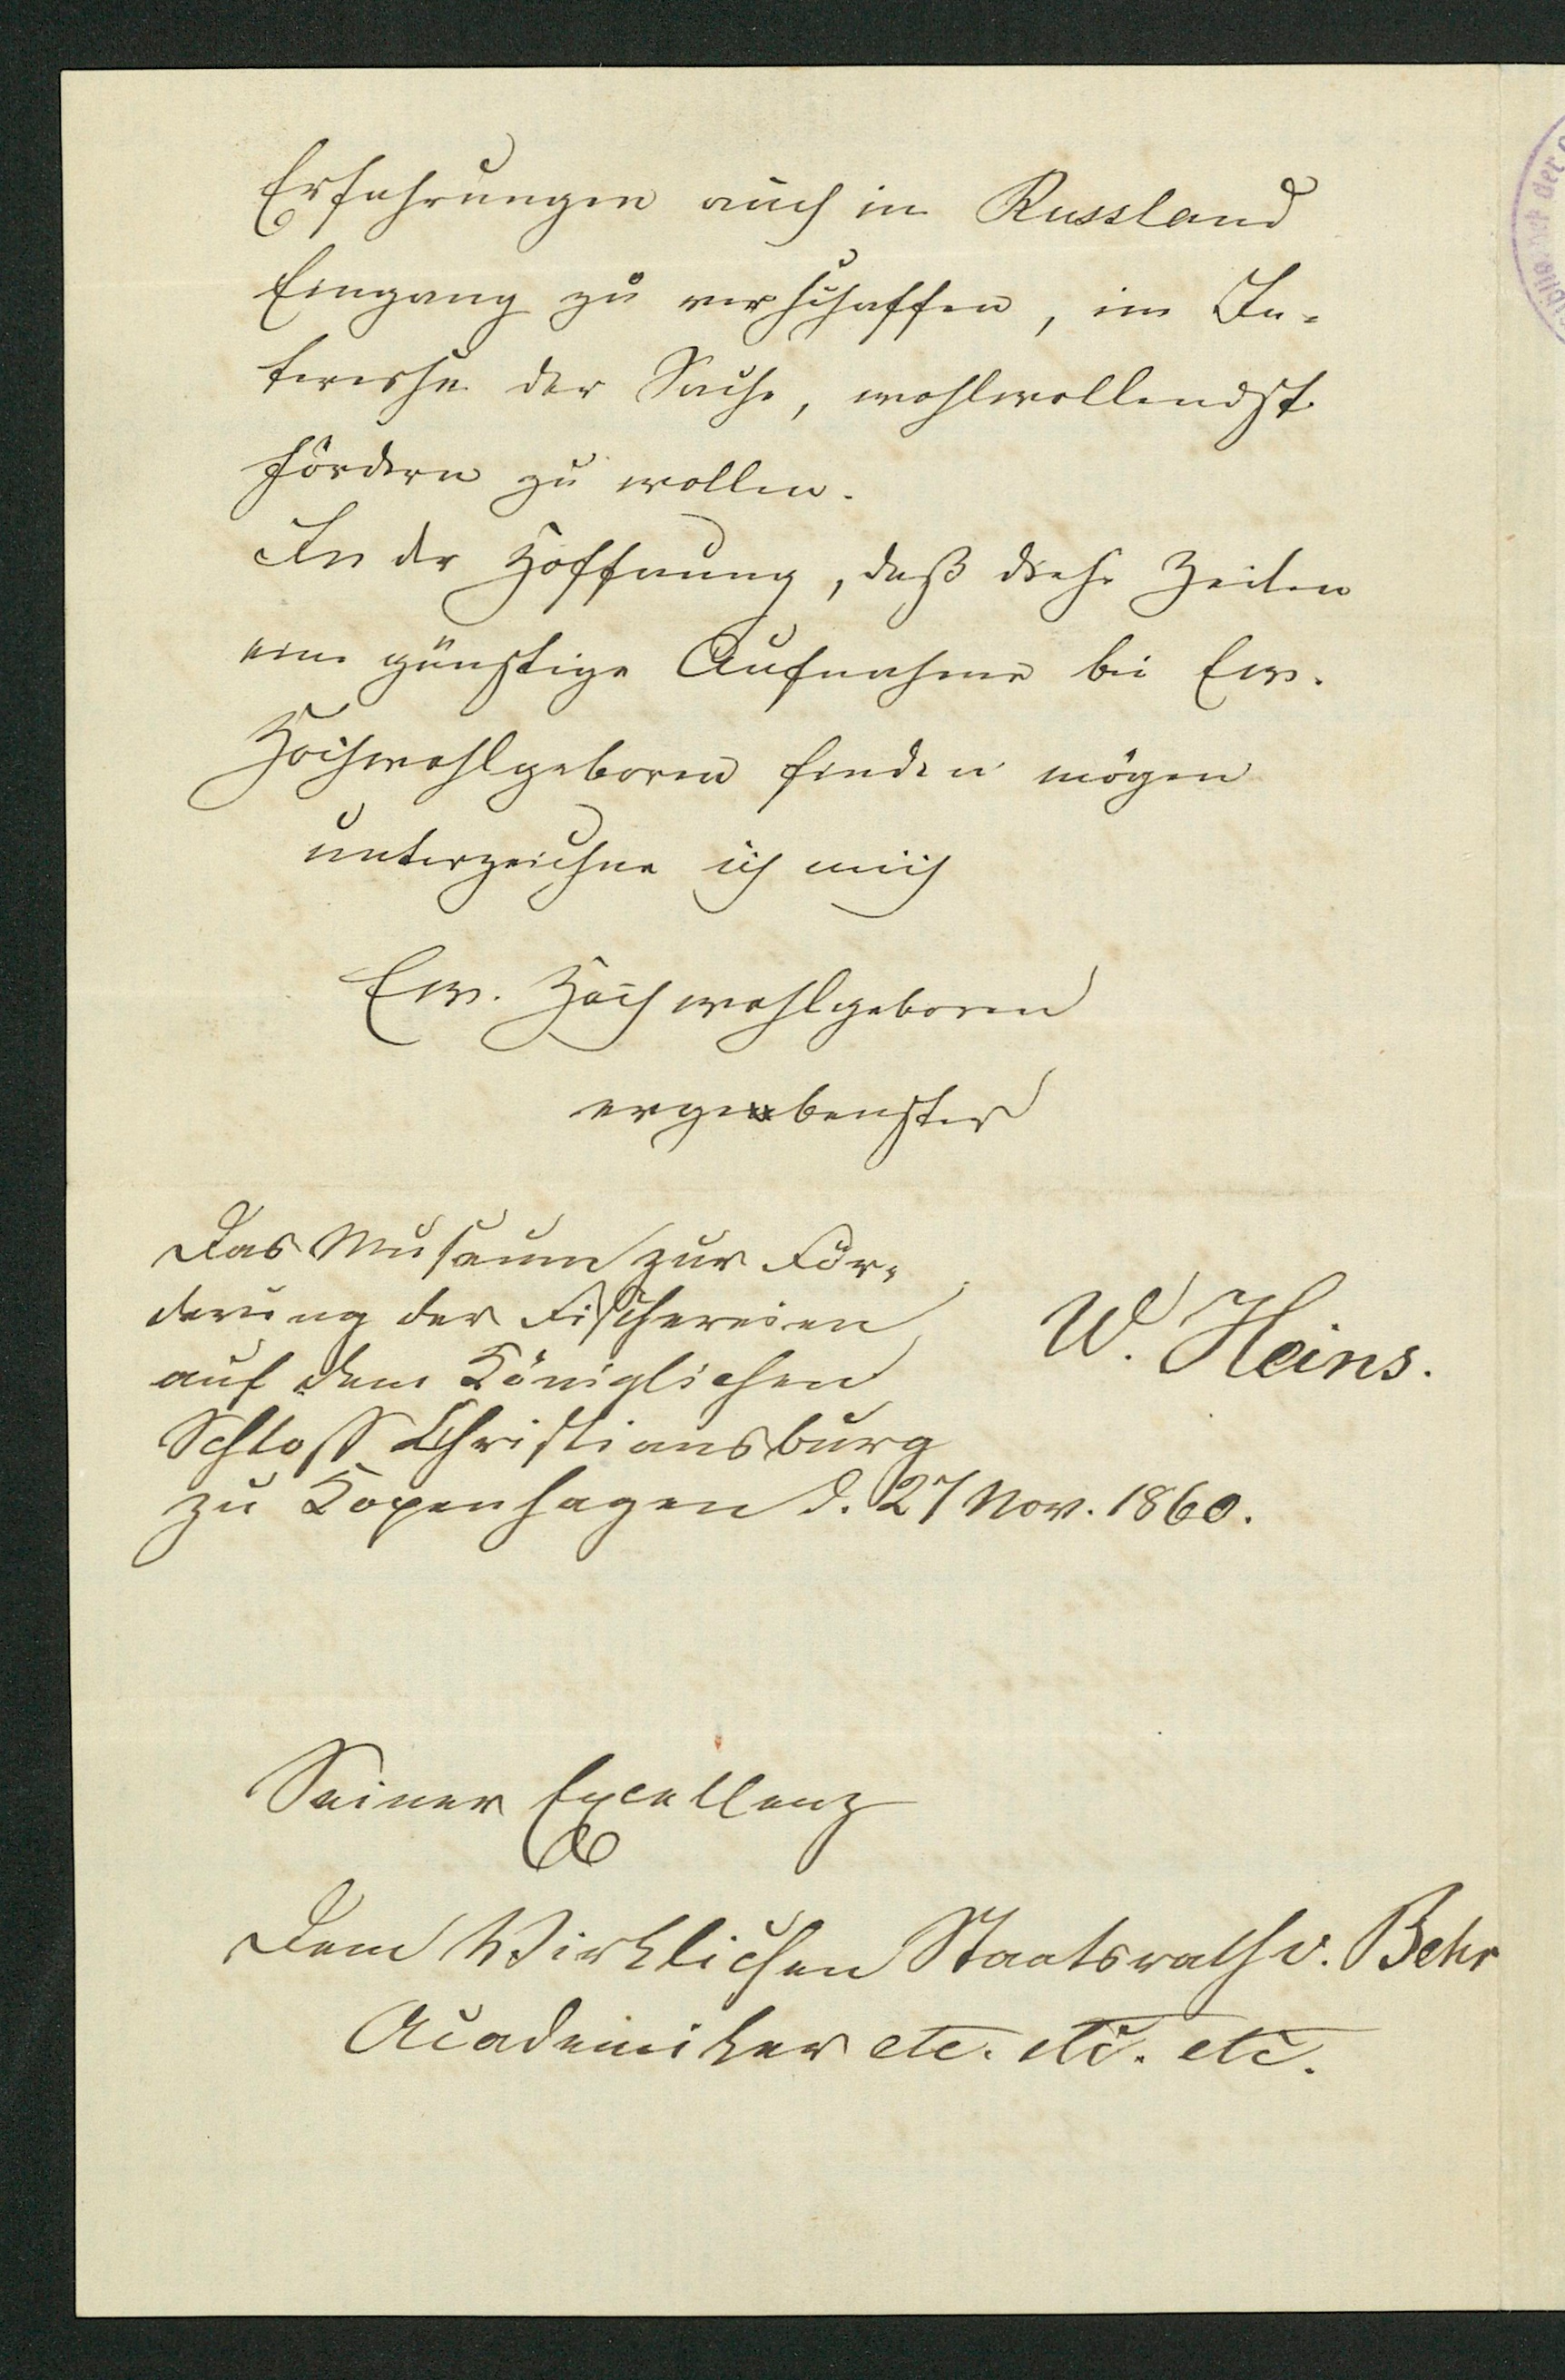 Erfahrungen auch in Russland
Eingang zu verschaffen, im In-
teresse der Sache, wohlwollendst
fördern zu wollen.
In der Hoffnung, daß diese Zeilen
eine günstige Aufnahme bei Ew.
Hochwohlgeboren finden mögen
unterzeichne ich mich
Ew. Hochwohlgeboren
ergebenster
Das Museum zur För-
derung der Fischereien
auf dem Königlichen
Schloss Christiansburg
zu Kopenhagen d. 27 Nov. 1860.
W. Heins.
Seiner Excellenz
Dem Wirklichen Staatsrath v. Behr
Academiker etc. etc. etc.